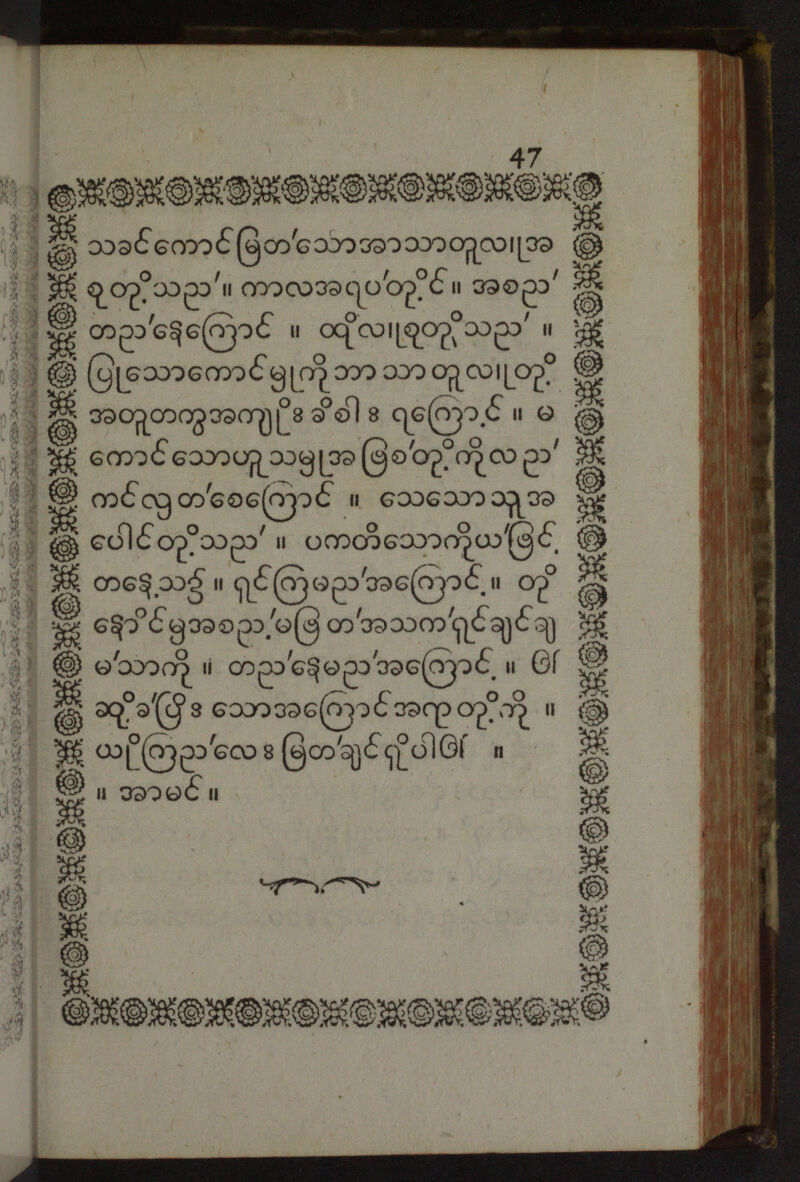 47
သခင်ကောင်မြတ်သောအာသာတူလျူအ
စုတို့သည်။ ကာလအရပ်တို့င်။ အစည်
တည်နေ့ကြောင် ။ ထိုလျူစုတို့သည် ။
ပြုသောကောင်မှုကို ဘာသာတူလျူတို့
အတူတကွအကျူိးခံစါးရကြောင့် ။ မ
ကောင်သောဟူသမျှအဖြစ်တို့ကိုလည်
ကင်လွတ်စေကြောင် ။ သေသောသူအ
ပေါင်တို့သည် ။ ပကတိသောကိုယ်ဖြင့်
တနေ့သ၌။ ရှင်ကြမည်အကြောင့်။ တို
နှောင်မှအစည့်မဖြတ်အသက်ရှင်ချင်ချ
မ်သာကို ။ တည်နေ့မည်အကြောင့် ။ ဩ
ဆို့ခ်ပြိုးသောအကြောင်အရာတို့ကို ။
ယုံကြည်လေးမြတ်ချင်ရှိပါဩ ။
။ အာမင်။